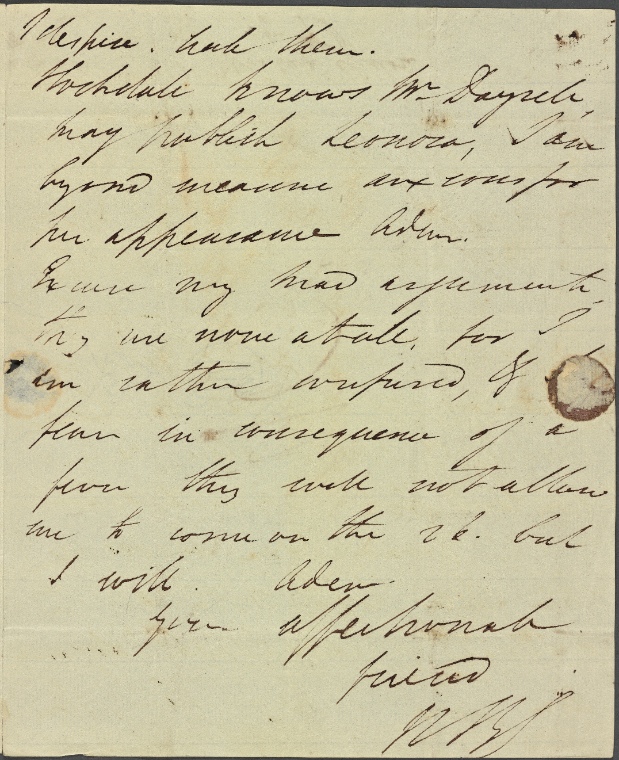 I despise. hate them.
Stockdale knows Mr. Dayrell,
may publish Leonora, I am
beyond measure anxious for
her appearance Adieu.
Excuse my mad arguments,
they are none at all, for I
am rather confused, & I
fear in consequence of a
fever they will not allow
me to come on the 26. but
I will. Adieu.
Your affectionate
friend
PBS